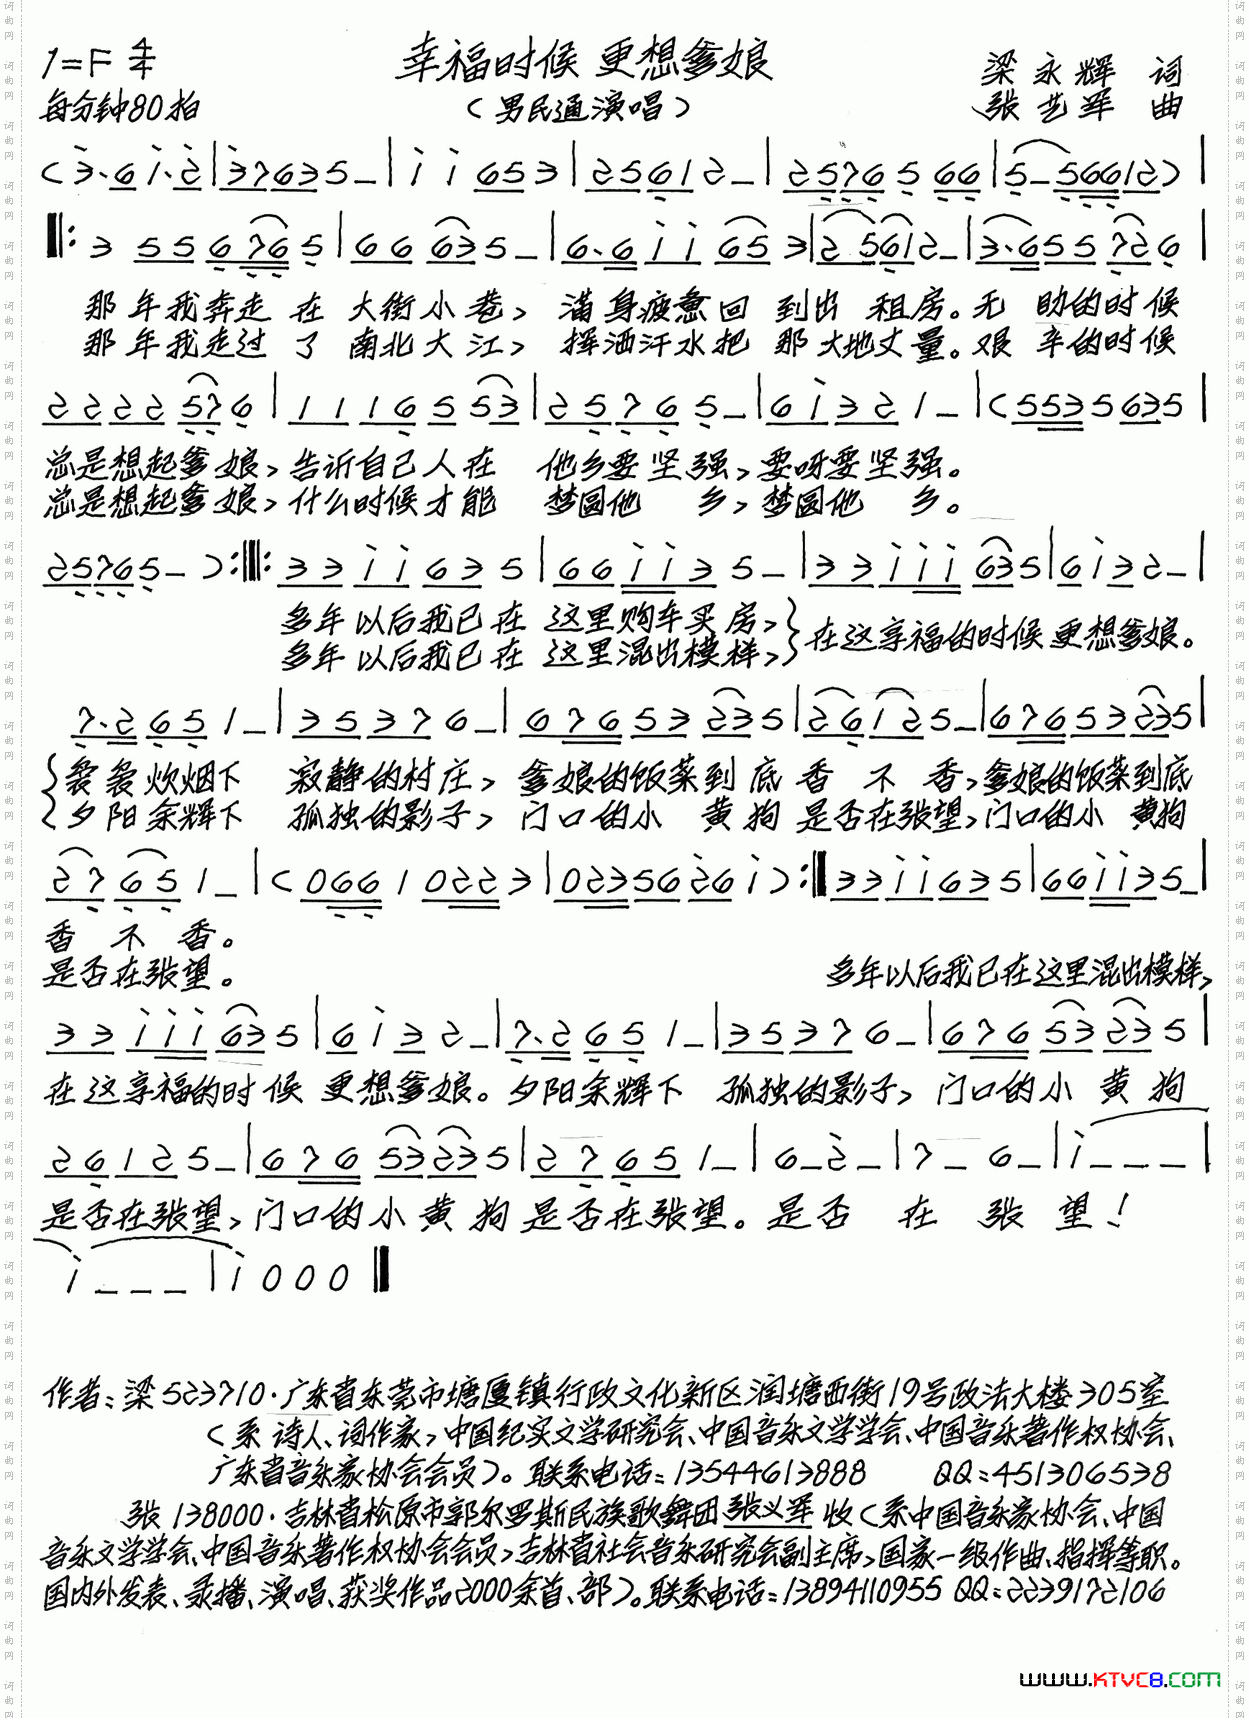 1=F 4/4
幸福时候 更想爹娘
梁永辉 词
每分钟80拍
(男民通演唱)
张艺军 曲
(3·6 1·2|37635_|1 1 653|25612_|2576 5 66|5_566612)|
‖:3 55 676 5|66 635_|6·6 11 65 3|25612_|3·655 726|
那年我奔走 在 大街小巷, 满身疲惫回 到出 租房。无 助的时候
那年我走过 了 南北大江, 挥洒汗水把 那大地丈量。艰 辛的时候
2222 576|1116 553|2576 5_|6132 1_|(5535 635|
总是想起爹 娘,告诉自己人在 他乡要坚强,要呀要坚强。
总是想起爹 娘,什么时候才能 梦圆他 乡,梦圆他 乡。
25765_):‖:3311 635|66113 5_|33111 635|6132_|
多年以后我已在 这里购车买房,
多年以后我已在 这里混出模样,
在这享福的时候更想爹娘。
7·265 1_|3537 6_|67653 235|26125_|67653235|
袅袅炊烟下 寂静的村庄, 爹娘的饭菜到 底香 不 香,爹娘的饭菜到底
夕阳余辉下 孤独的影子, 门口的小 黄狗 是否在张望,门口的小 黄狗
2765 1_|(0661 0223|02356261):‖3311635|661135_|
香 不 香。
是否在张望。
多年以后我已在这里混出模样,
33111 635|6132_|7·265 1_|35376_|676 53 235|
在这享福的时候 更想爹娘。夕阳余辉下 孤独的影子, 门口的小 黄 狗
26125_|676 53235|2765 1_|6_2_|7_ 6_|1___|
是否在张望,门口的小黄 狗是否在张望。是否 在 张 望!
1___|1000‖
作者:梁 523710·广东省东莞市塘厦镇行政文化新区润塘西街19号政法大楼305室
(系 诗人、词作家,中国纪实文学研究会、中国音乐文学学会、中国音乐著作权协会、
广东省音乐家协会会员)。联系电话:13544613888 QQ:451306538
张 138000·吉林省松原市郭尔罗斯民族歌舞团张义军 收(系中国音乐家协会、中国
音乐文学学会、中国音乐著作权协会会员,吉林省社会音乐研究会副主席,国家一级作曲、指挥等职。
国内外发表、录播、演唱、获奖作品2000余首、部)。联系电话:13894110955 QQ:2239172106
www.KTVC8.com